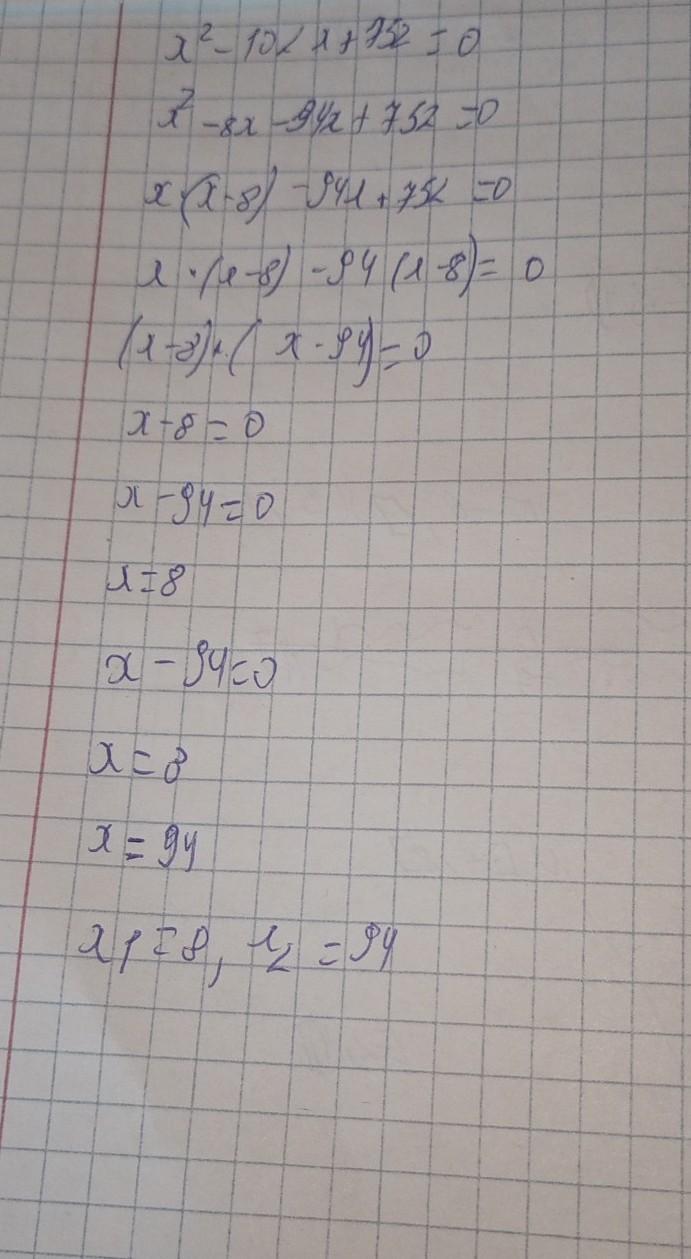 x² - 102x + 752 = 0
x² - 8x - 94x + 752 = 0
x·(x-8) - 94x + 752 = 0
x·(x-8) - 94(x-8) = 0
(x-8)·(x-94) = 0
x-8=0
x-94=0
x=8
x-94=0
x=8
x=94
x1=8, x2=94